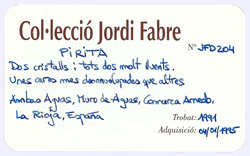 Col·lecció Jordi Fabre
Nº JFD204
PIRITA
Dos cristalls i tots dos molt lluents.
Unes cares mes desenvolupades que altres
Ambas Aguas, Muro de Aguas, Comarca Arnedo,
La Rioja, España
Trobat: 1991
Adquisició: 04/01/1995